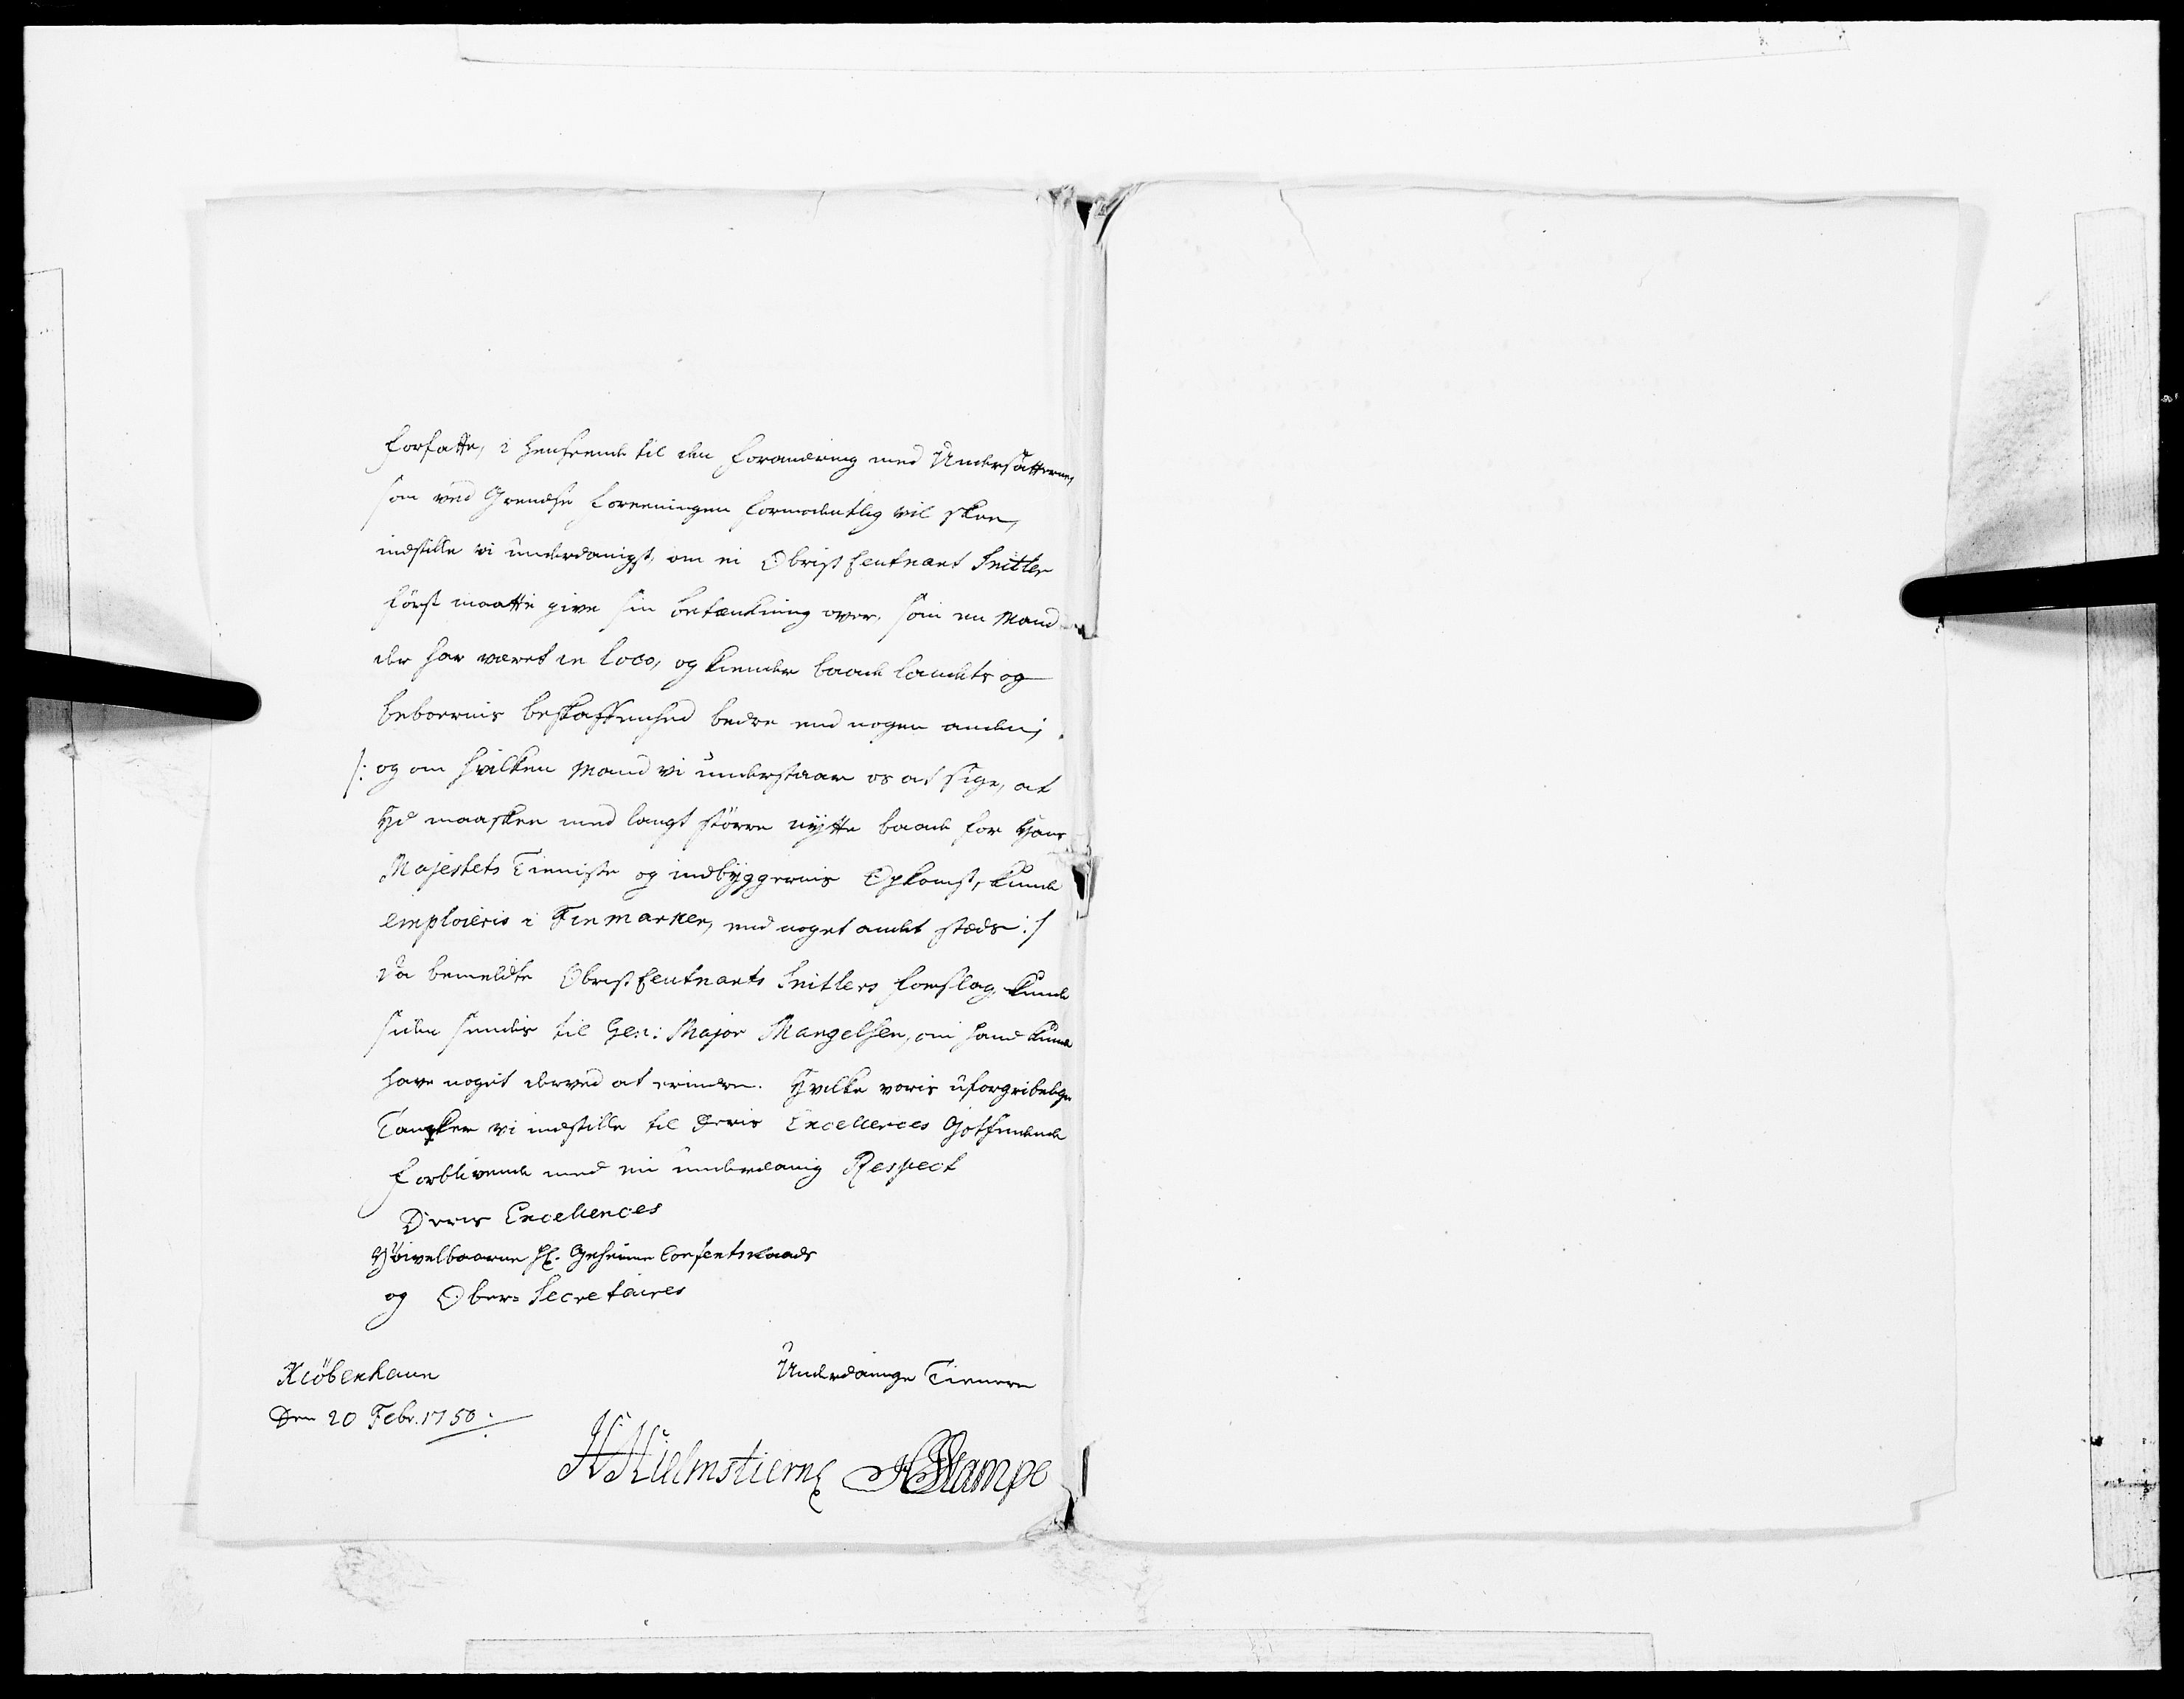 forfatte, i henseende til den forandring med Undersätterne,
som ved Grendse foreeningen formodentlig vil skee,
indstille vi underdanigst, om ei Obrist Leutnant Snitler
först maatte give sin betænkning over, som en Mand
der har været in loco, og kiender baade landets og
beboernis beskaffenhed bedre end nogen anden;
/: og om hvilken Mand vi understaar os at sige, at
Hd maaskee med langt större nytte baade for Hans
Majestets Tieniste og indbyggernis Opkomst, kunde
emploieris i Finmarken, end noget andet stæds :/
Da bemeldte Obrist Leutnants Snitlers forslag kunde
siden sendes til Gen: Major Mangelsen, om hand kunde
have noget derved at erindre. Hvilke voris uforgribelige
Tancker vi indstille til Deris Excellences Gotfindende
forblivende med en underdanig Respect
Deris Excellences
Höivelbaarne Hr. Geheime Conferentsraads
og Ober-Secretaires
Kiöbenhavn
Den 20 Febr. 1750.
Underdanige Tienere
H Hielmstierne HStampe